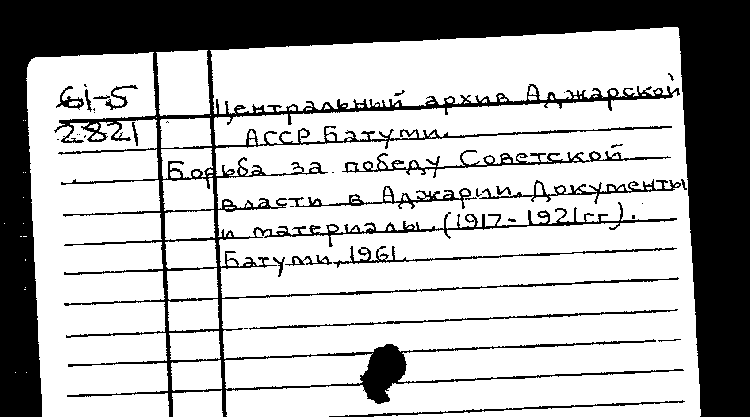 61-5
2821
Центральный архив Аджарской
АССР Батуми.
Борьба за победу Советской
власти в Аджарии. Документы
и материалы. (1917-1921гг).
Батуми, 1961.